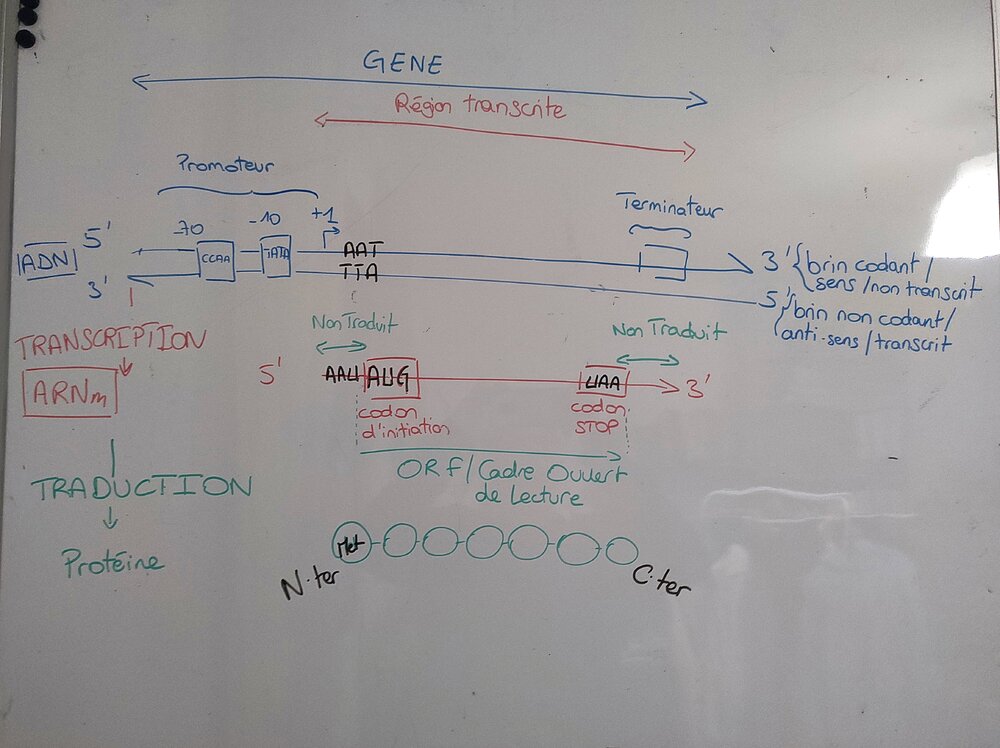 GENE
Région transcrite
Promoteur
Terminateur
-70
-10
+1
ADN
5'
CCAA
TATA
AAT
3'
brin codant/
sens/non transcrit
3'
TTA
5'
brin non codant/
anti-sens/transcrit
TRANSCRIPTION
Non Traduit
Non Traduit
ARNm
5'
AAU
AUG
UAA
3'
codon
d'initiation
codon
STOP
TRADUCTION
ORF/Cadre Ouvert
de Lecture
Protéine
Met
N.ter
C.ter